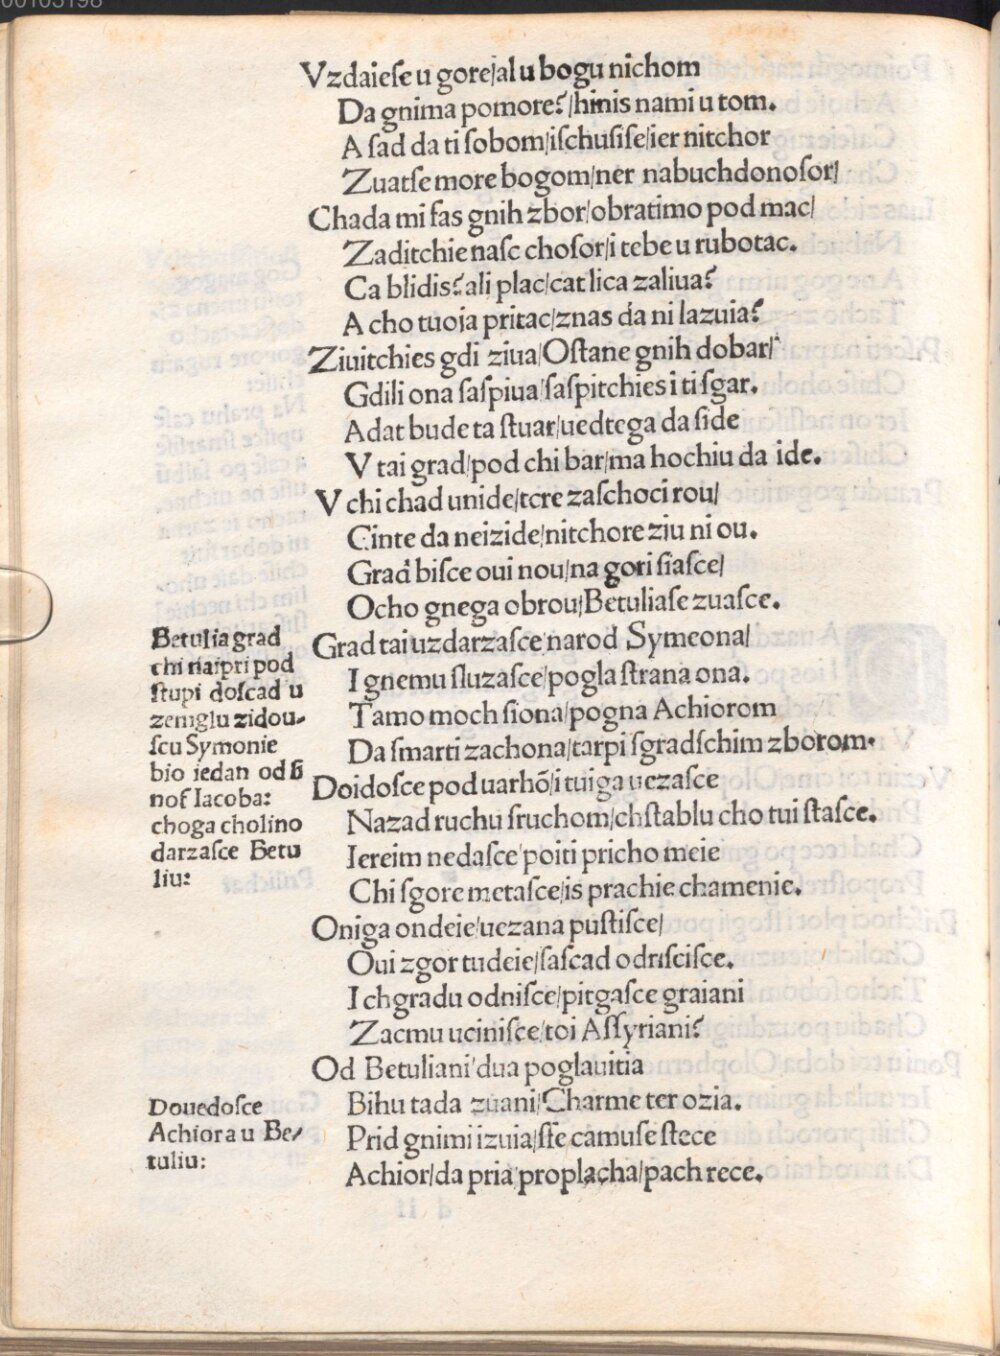 Vzdaieſe u gore/al u bogu nichom
Da gnima pomore?/hinis nami u tom.
A ſad da ti ſobom/iſchuſiſe/ier nitchor
Zuatſe more bogom/ner nabuchdonoſor/
Chada mi ſas gnih zbor/obratimo pod mac/
Zaditchie naſc choſor/i tebe u rubotac.
Ca blidis? ali plac/cat lica zaliua?
A cho tuoja pritac/znas da ni lazuia?
Ziuitchies gdi ziua/Oſtane gnih dobar/
Gdili ona ſaſpiua/ſaſpitchies i ti ſgar.
Adat bude ta ſtuar/uedtega da ſide
V tai grad/pod chi bar/ma hochiu da ide.
V chi chad unide/tere zaſchoci rou/
Cinte da neizide/nitchore ziu ni ou.
Grad biſce oui nou/na gori ſiaſce/
Ocho gnega obrou/Betuliaſe zuaſce.
Betulia grad
chi naipri pod
ſtupi doſcad u
zemglu zidou-
ſcu Symonie
bio iedan od ſi
nof Iacoba:
choga cholino
darzaſce Betu
liu:
Grad tai uzdarzaſce/narod Symeona/
I gnemu ſluzaſce/pogla ſtrana ona.
Tamo moch ſiona/pogna Achiorom
Da ſmarti zachona/tarpi ſgradſchim zborom.
Doidoſce pod uarhō/i tuiga uezaſce
Nazad ruchu ſruchom/chſtablu cho tui ſtaſce.
Iereim nedaſce/poiti pricho meie
Chi ſgore metaſce/is prachie chamenie.
Oniga ondeie/uezana puſtiſce/
Oui zgor tudeie/ſaſcad odriſciſce.
I chgradu odniſce/pitgaſce graiani
Zacmu uciniſce/toi Aſſyriani?
Od Betuliani/dua poglauitia
Bihu tada zuani/Charme ter ozia.
Prid gnimi izuia/ſſe camuſe ſtece
Achior/da pria proplacha/pach rece.
Douedoſce
Achiora u Be-
tuliu: